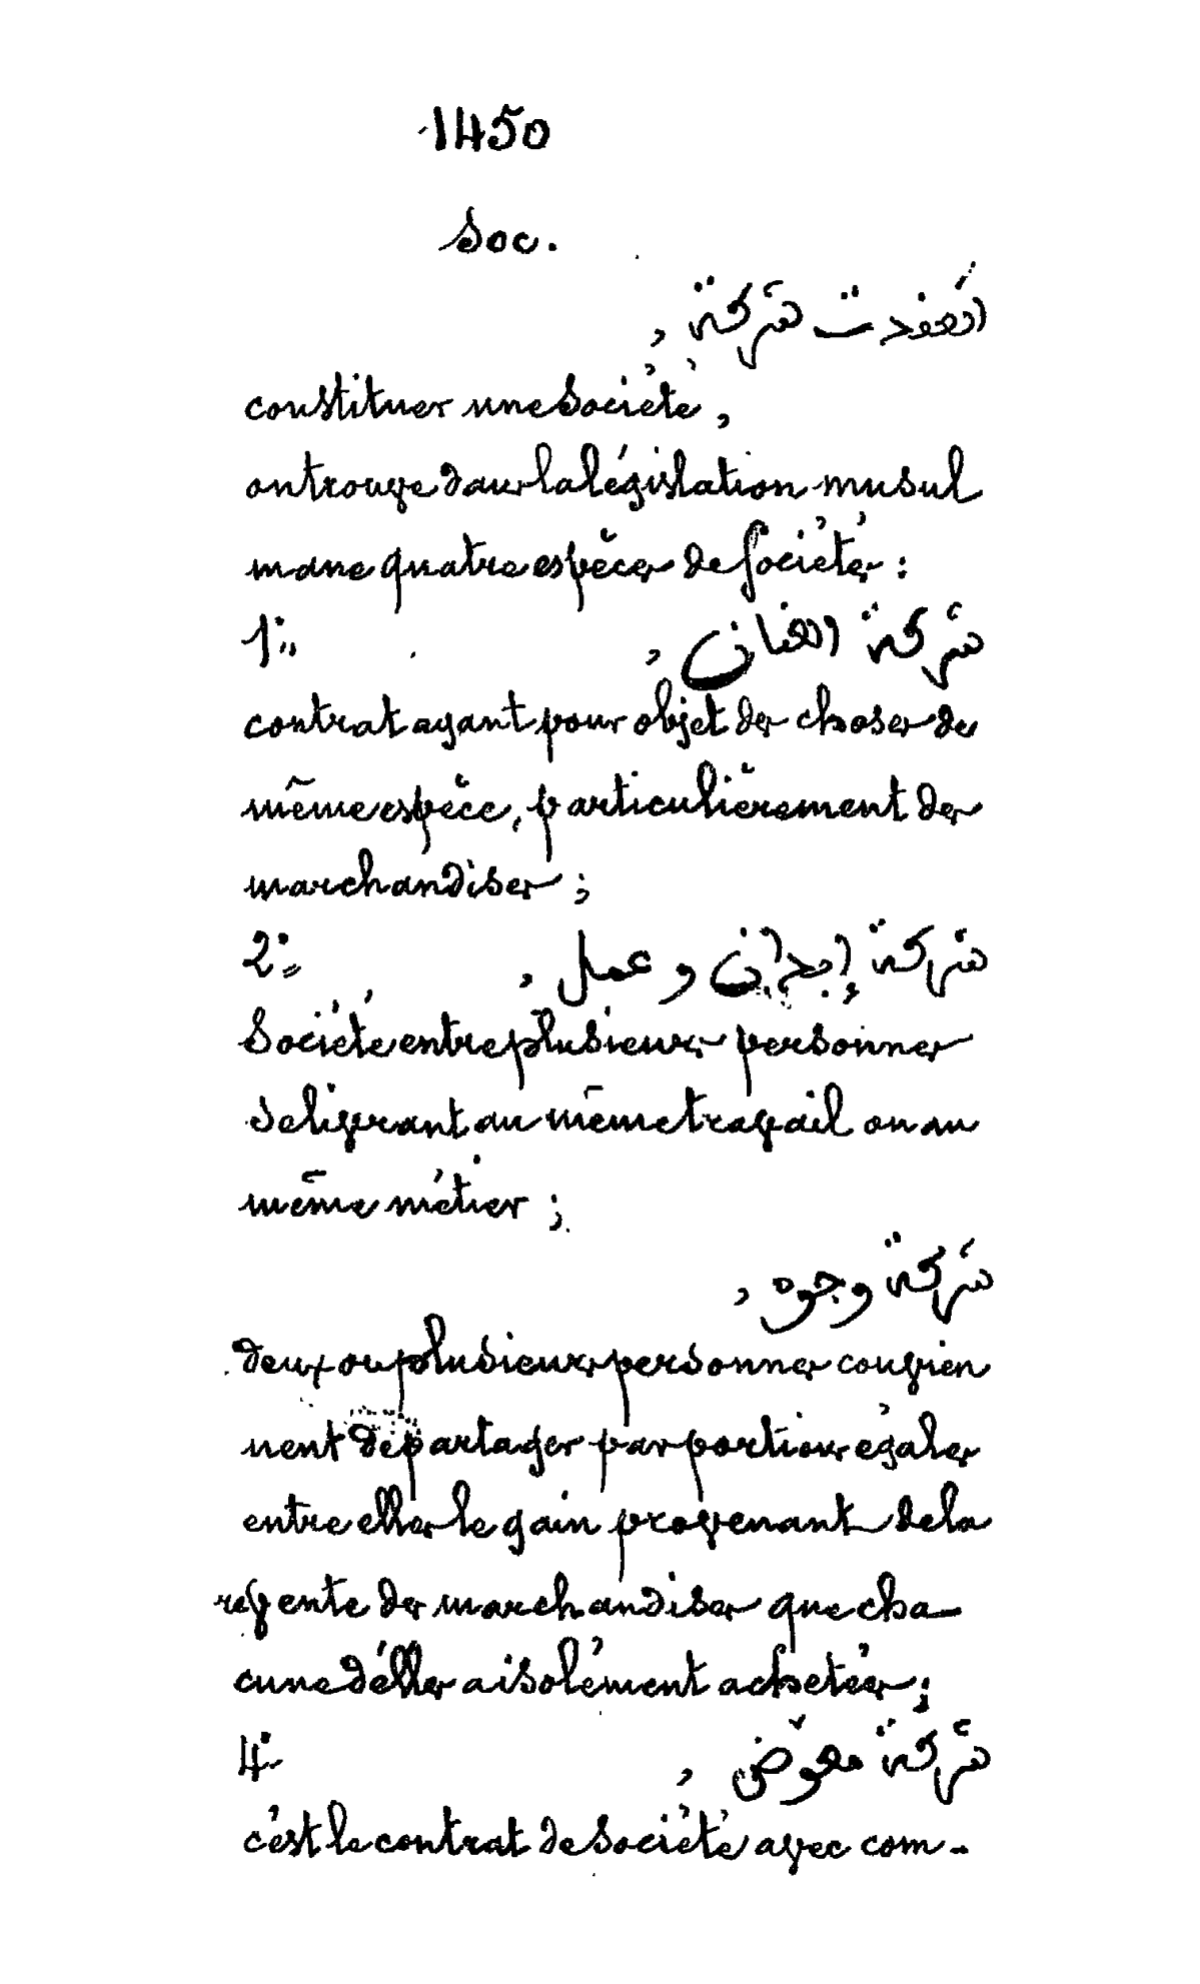 1450
Soc.
انعقدت شركة ,
constituer une Société,
on trouve dans la législation musul
mane quatre espèces de Sociétés :
1° شركة العنان ,
contrat ayant pour objet des choses de
même espèce, particulièrement des
marchandises ;
2° شركة إبدان و عمل ,
Société entre plusieurs personnes
se livrant au même travail ou au
même métier ;
شركة وجوه ,
deux ou plusieurs personnes convien
nent de partager par portions égales
entre elles le gain provenant de la
revente des marchandises que cha-
cune d'elles a isolément achetées ;
4° شركة معوّض ,
c'est le contrat de Société avec com-